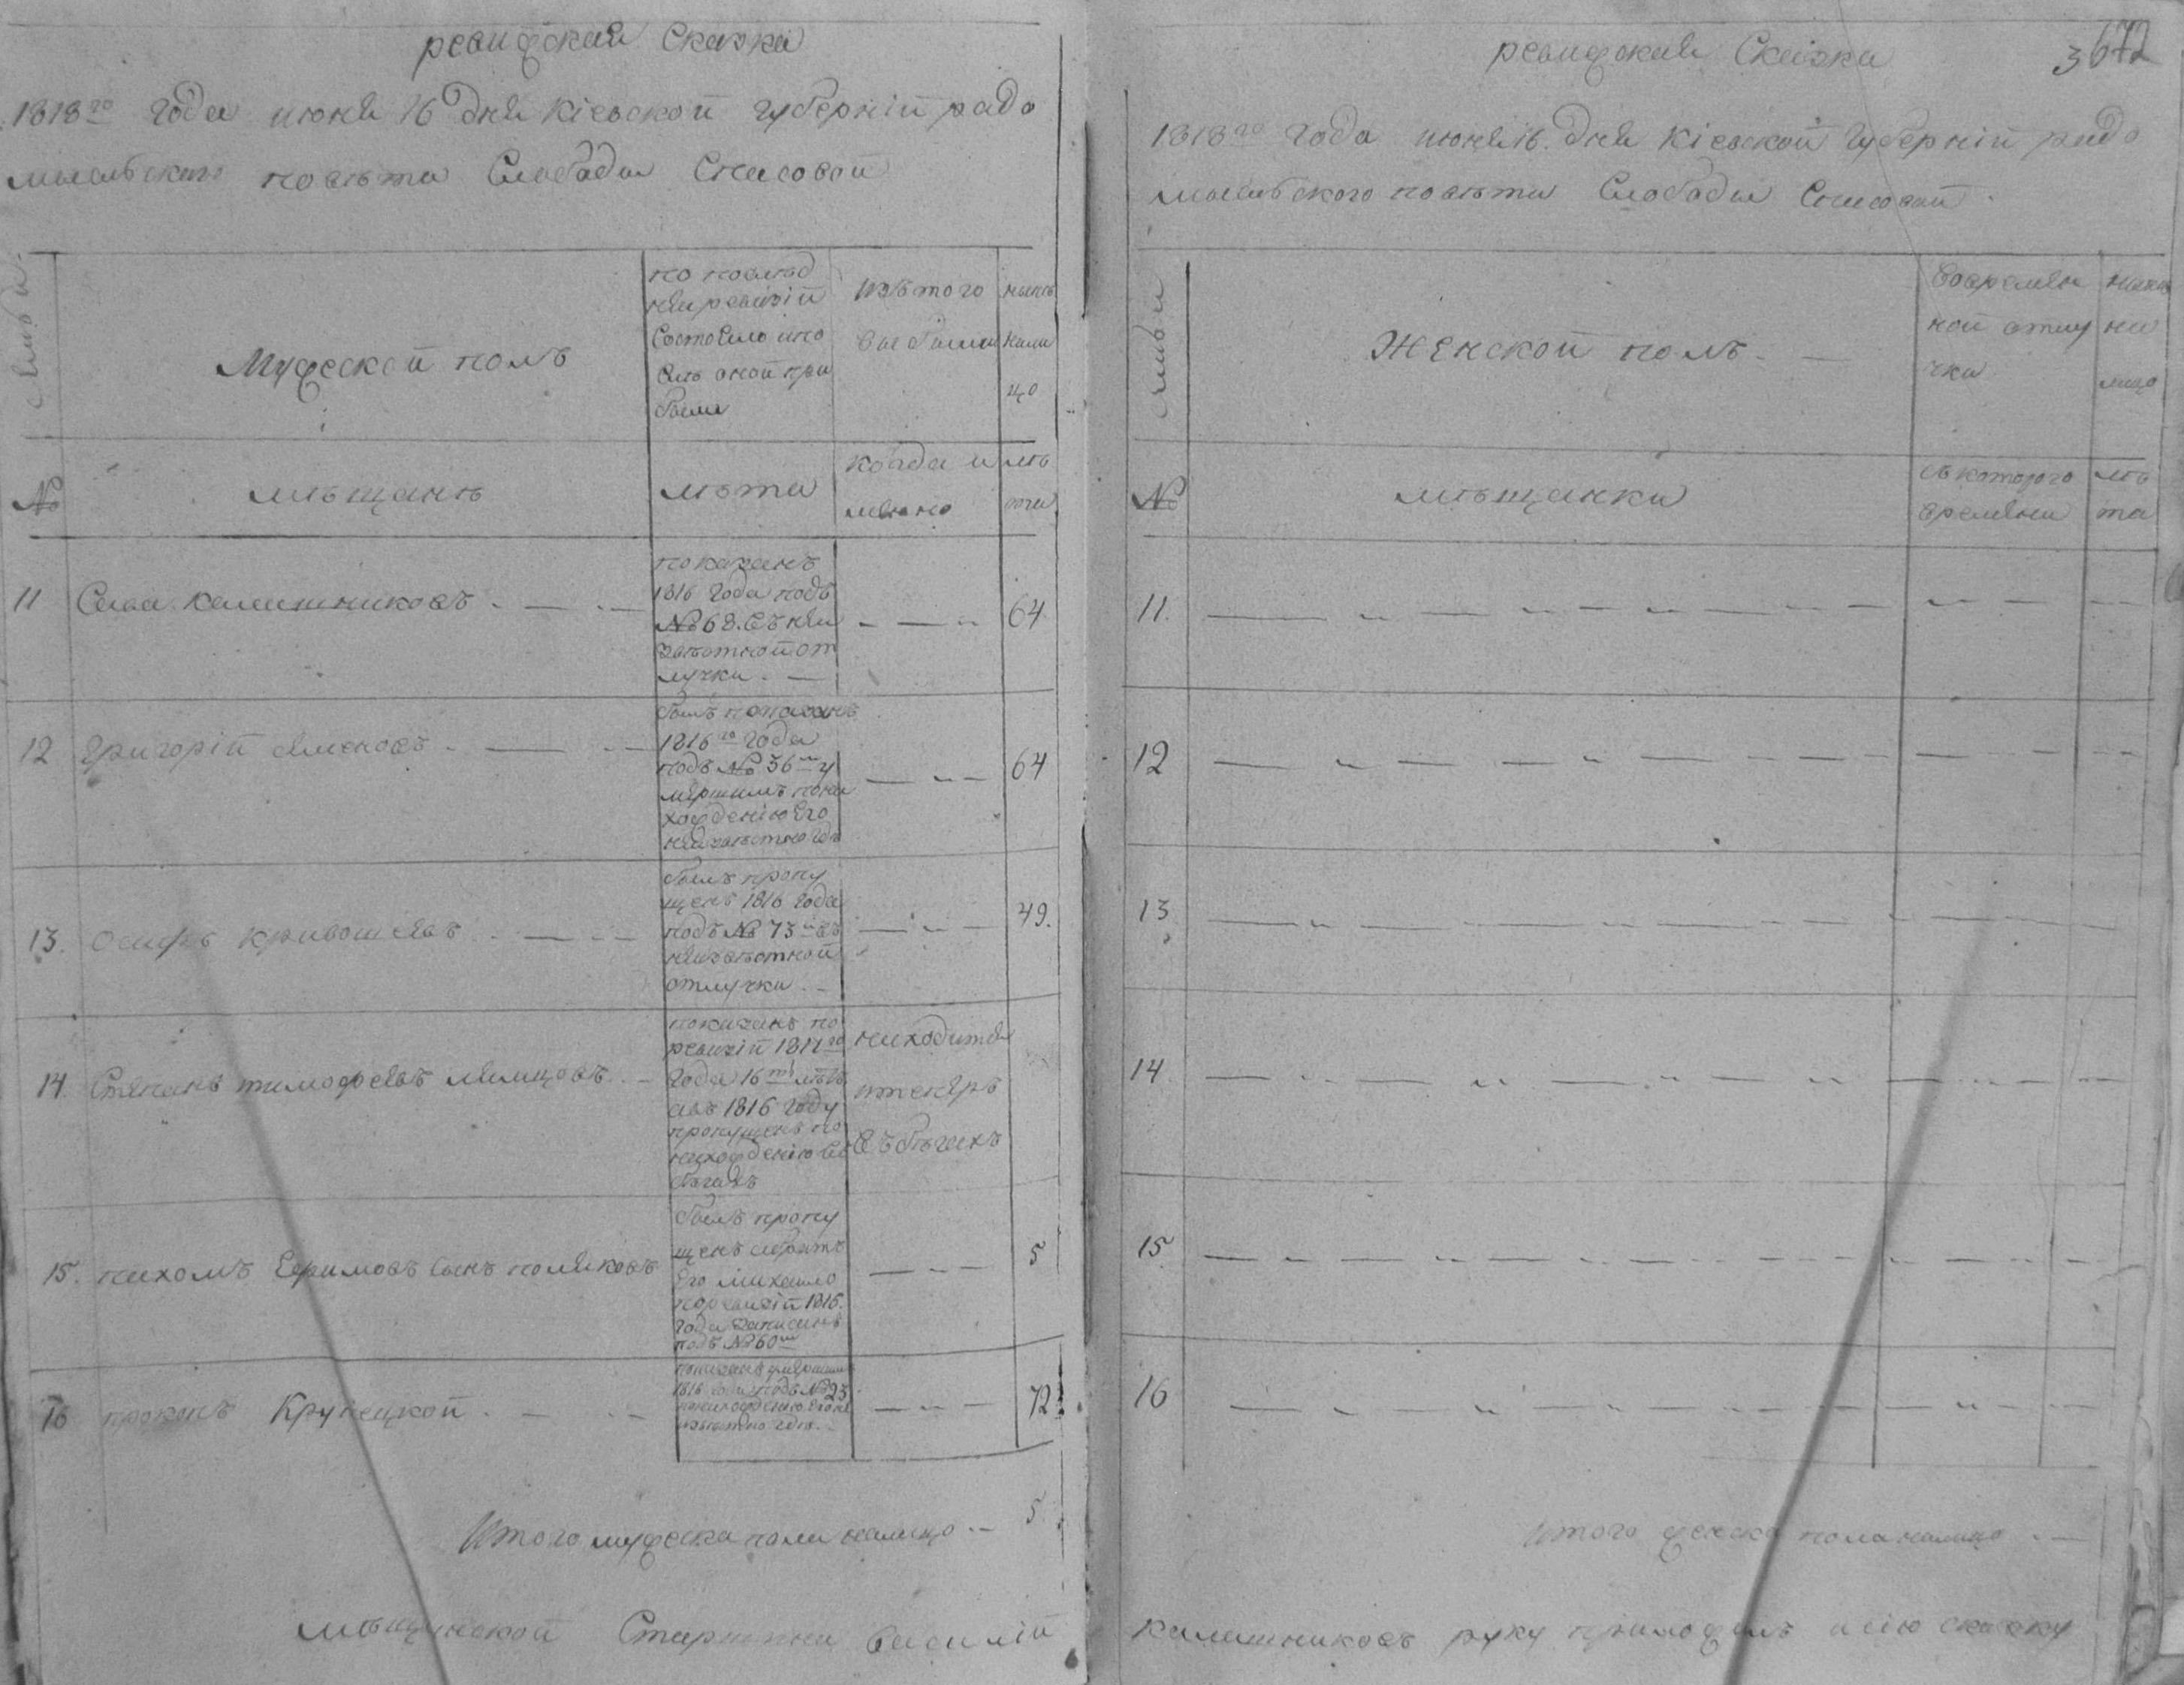 ревизская Сказка
1818го года июня 16 дня Кіевской губерніи радо
мысльского повѣта Слободы Спасовой
семьи
Мужеской полъ
по послѣд
ней ревизіи
Состояло ипо
слѣ оной при
было
Изътого
выбыло
нынѣ
нали
цо
№
мѣщанѣ
лѣта
когда и
имянно
лѣ
та
11 Сава Калашниковъ
показанъ
1816 года подъ
№ 68. въ неи
звѣстной от
лучки.
64
12 Григорій
былъ показанъ
1816го года
подъ № 36м у
мершимъ пона
хожденію Его
неизвѣстно гдѣ
64
13. Осипъ Кривошеевъ
былъ пропу
щенъ 1816 года
подъ № 73 въ
неизвѣстной
отлучки
49.
14. Степанъ тимофѣевъ
показанъ по
ревизіи 1811го
года 16ти лѣтъ
авъ 1816 году
пропущенъ по
нахожденію въ
бѣгахъ
находится
итеперь
въ бѣгахъ
15. пахомъ Ефимовъ Сынъ поляковъ
былъ пропу
щенъ абратъ
Его михайло
поревизіи 1816.
года записанъ
подъ № 60м
5
16 прокопъ Крупецкой
показанъ умершимъ
1816 года подъ № 23
понахожденію Его не
извѣстно гдѣ.
72
Итого мужеска пола налицо 5.
мѣщанской Старшина Василій
ревизская Сказка
3672
1818го года июня 16. дня Кіевской Губерніи радо
мысльского повѣта Слободы Спасовой.
семьи
Женской полъ
Вовремян
ной отлу
чки
нынѣ
на
лицо
№
мѣщанки
съ которого
времяни
лѣ
та
11.
12
13
14
15
16
Итого женска пола налицо
Калашниковъ руку приложилъ исію сказку